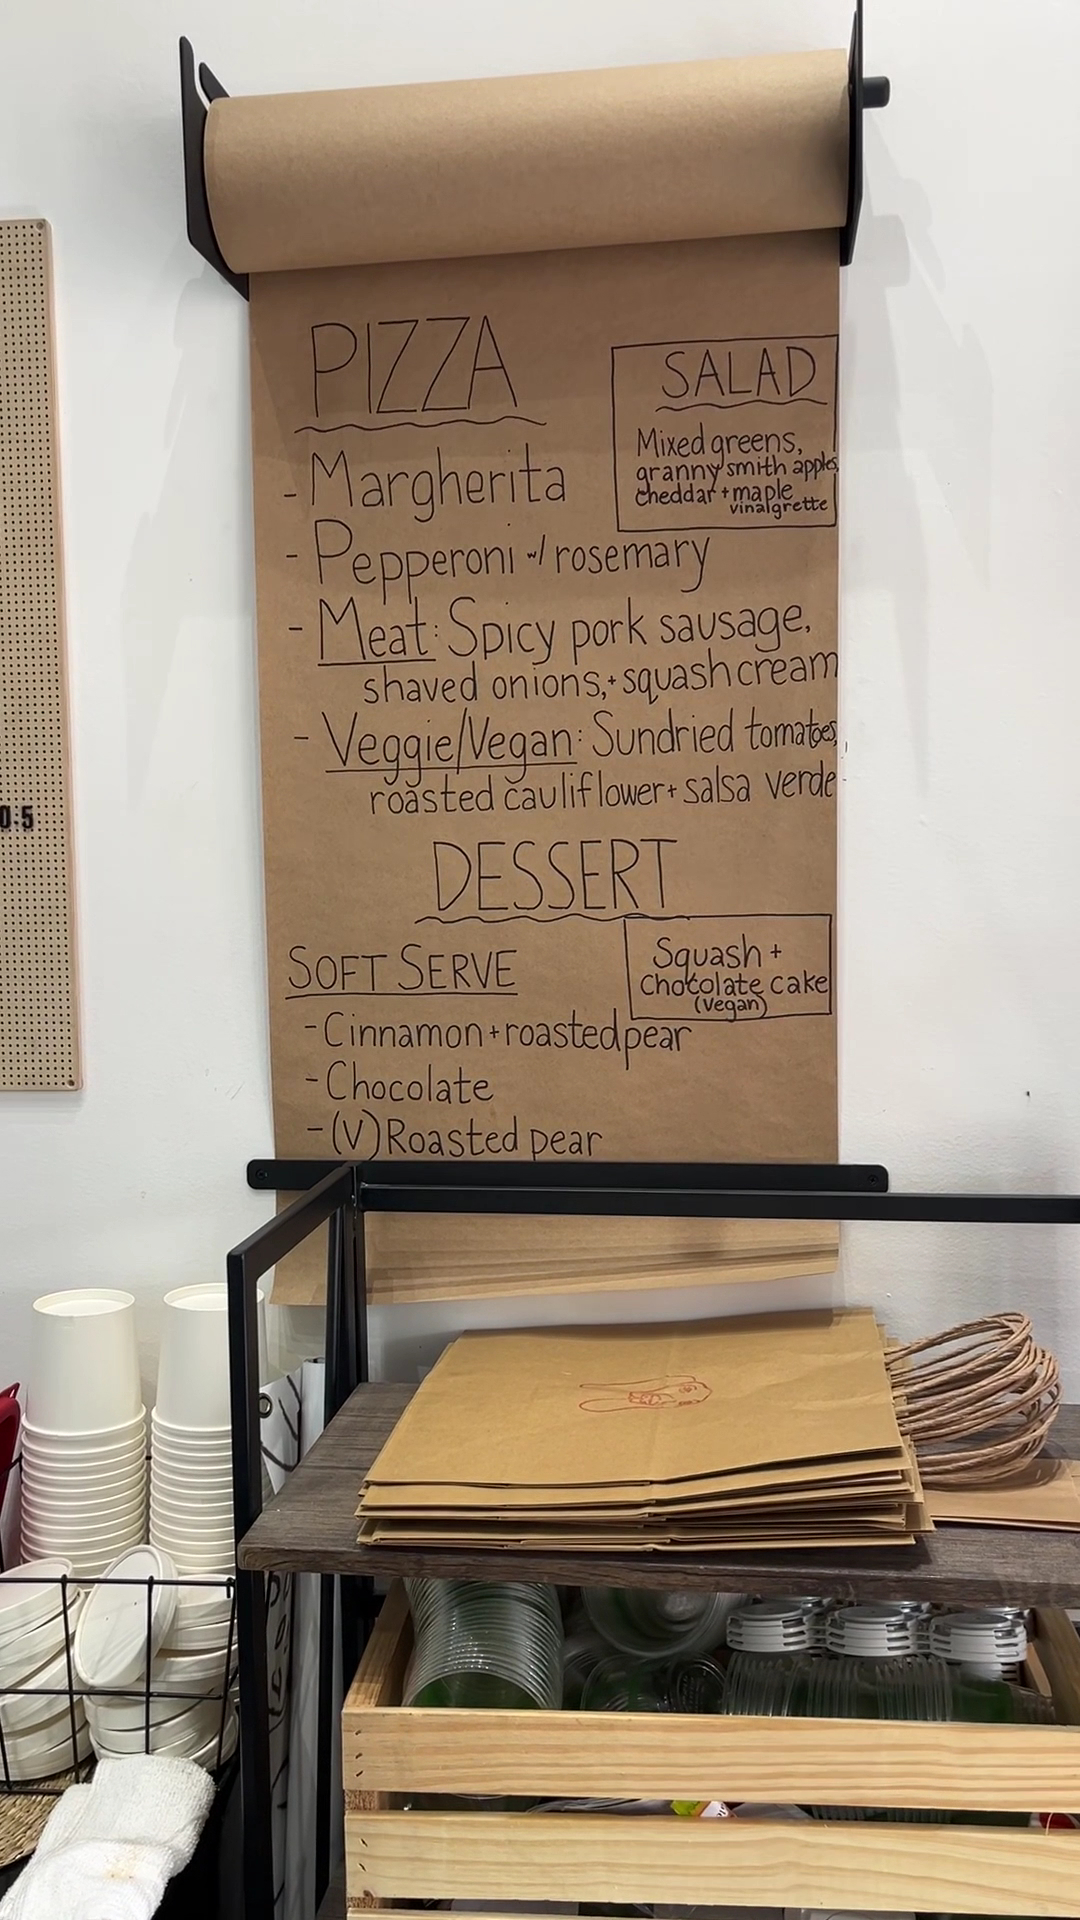 PIZZA
- Margherita
- Pepperoni w/ rosemary
- Meat: Spicy pork sausage,
shaved onions,+ squash cream
- Veggie/Vegan: Sundried tomatoes,
roasted cauliflower + salsa verde
SALAD
Mixed greens,
granny smith apples,
cheddar + maple
vinaigrette
DESSERT
SOFT SERVE
- Cinnamon + roasted pear
- Chocolate
- (V) Roasted pear
Squash +
Chocolate cake
(vegan)
0:5